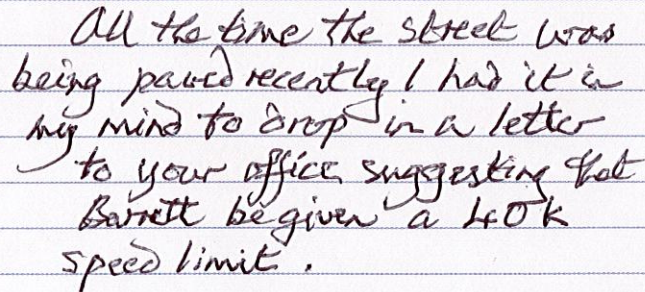 All the time the street was
being paved recently I had it in
my mind to drop in a letter
to your office suggesting that
Barrett be given a 40k
speed limit.